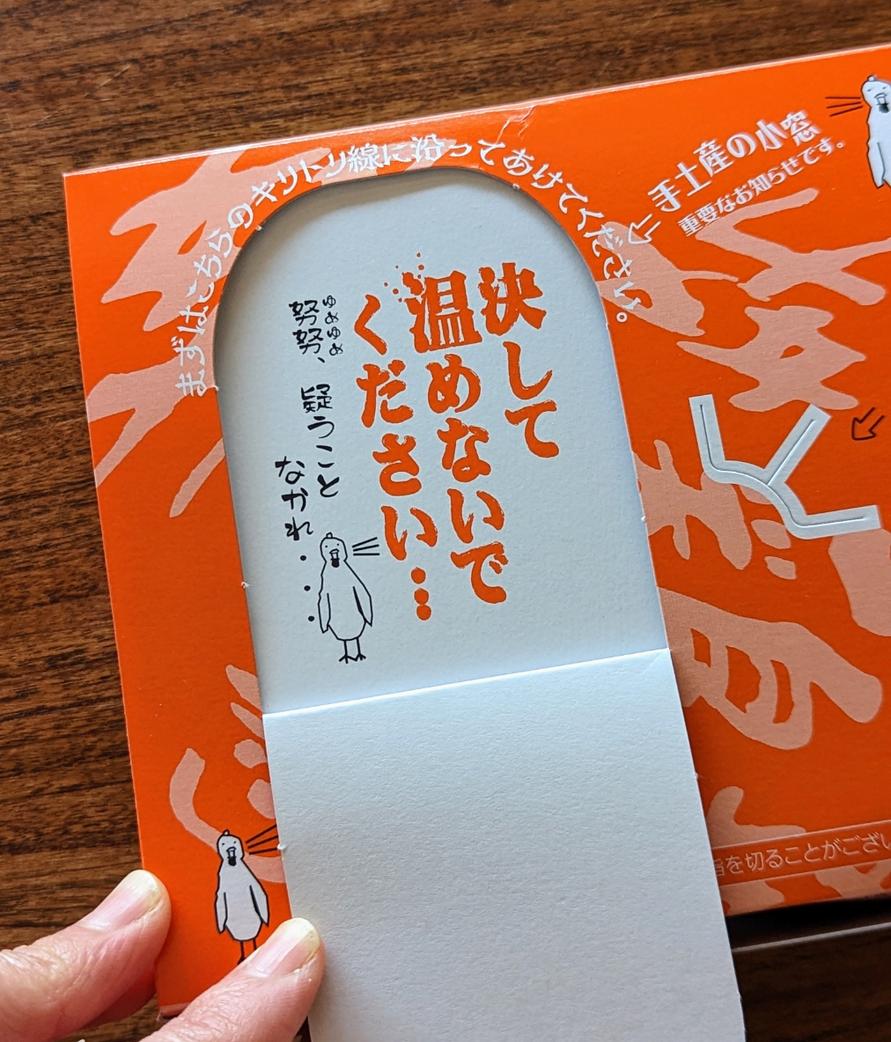 まずはこちらのキリトリ線に沿ってあけてください。
手土産の小窓
重要なお知らせです。
決して
温めないで
ください…
努努、疑うこと
ゆめゆめ
なかれ・・・
を切ることがござい